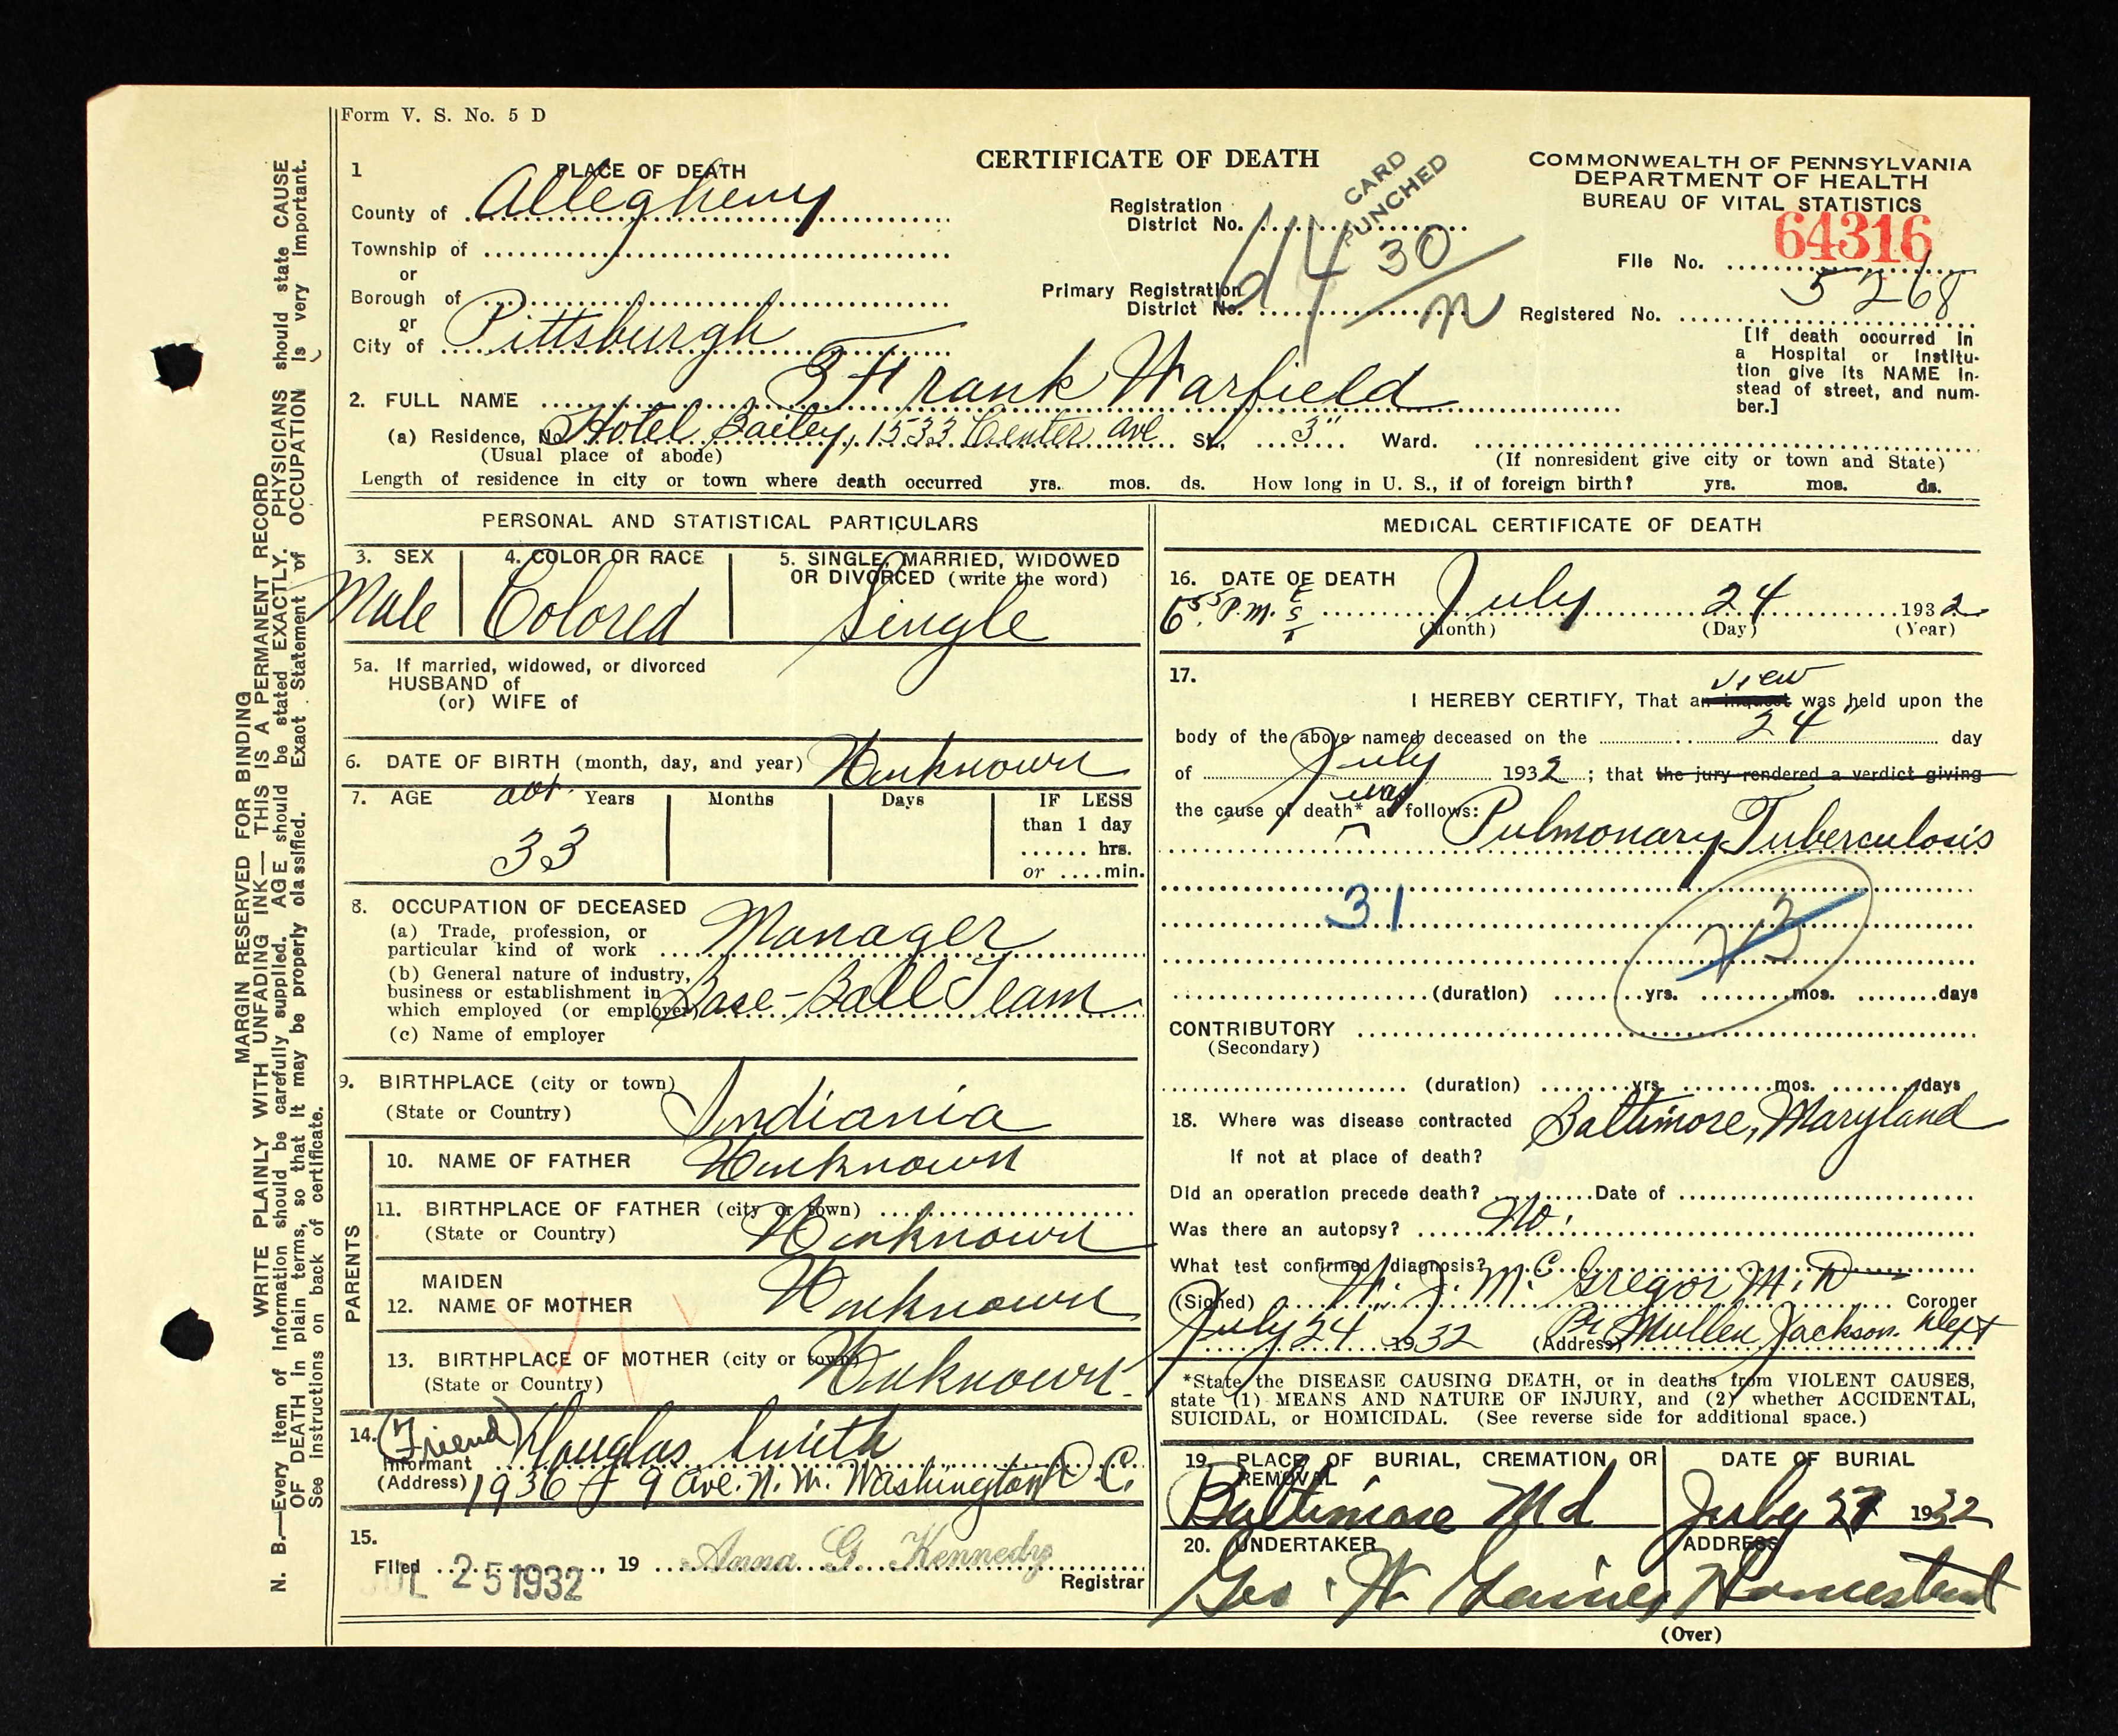 Form V. S. No. 5 D
CERTIFICATE OF DEATH
COMMONWEALTH OF PENNSYLVANIA
DEPARTMENT OF HEALTH
BUREAU OF VITAL STATISTICS
CARD PUNCHED
1 PLACE OF DEATH
County of Allegheny
Township of
or
Borough of
or
City of Pittsburgh
Registration District No.
Primary Registration District No.
30
File No. 64316
Registered No. 5268
[If death occurred in a Hospital or Institution give its NAME instead of street, and number.]
2. FULL NAME Frank Warfield
(a) Residence, No. Hotel Bailey, 1533 Center Ave St., 3" Ward.
(Usual place of abode) (If nonresident give city or town and State)
Length of residence in city or town where death occurred yrs. mos. ds. How long in U. S., if of foreign birth? yrs. mos. ds.
PERSONAL AND STATISTICAL PARTICULARS
3. SEX
Male
4. COLOR OR RACE
Colored
5. SINGLE, MARRIED, WIDOWED OR DIVORCED (write the word)
Single
5a. If married, widowed, or divorced
HUSBAND of
(or) WIFE of
6. DATE OF BIRTH (month, day, and year) Unknown
7. AGE abt. Years Months Days
33
IF LESS than 1 day
...... hrs.
or ....min.
8. OCCUPATION OF DECEASED
(a) Trade, profession, or particular kind of work Manager
(b) General nature of industry, business or establishment in which employed (or employer) Base-Ball Team
(c) Name of employer
9. BIRTHPLACE (city or town)
(State or Country) Indiania
PARENTS
10. NAME OF FATHER Unknown
11. BIRTHPLACE OF FATHER (city or town)
(State or Country) Unknown
12. MAIDEN NAME OF MOTHER Unknown
13. BIRTHPLACE OF MOTHER (city or town)
(State or Country) Unknown.
14. (Friend)
Informant Douglas Smith
(Address) 1936 - 9 Ave. N.W. Washington D.C.
15.
Filed JUL 25 1932, 19 Anna G. Kennedy
Registrar
MEDICAL CERTIFICATE OF DEATH
16. DATE OF DEATH
6:55 P.M. E S T July 24 1932
(Month) (Day) (Year)
17.
view
I HEREBY CERTIFY, That an inquest was held upon the
body of the above named deceased on the 24" day
of July 1932; that the jury rendered a verdict giving
the cause of death* was as follows: Pulmonary Tuberculosis
31
23
(duration) yrs. mos. days
CONTRIBUTORY
(Secondary)
(duration) yrs. mos. days
18. Where was disease contracted Baltimore, Maryland
If not at place of death?
Did an operation precede death? Date of
Was there an autopsy? No.
What test confirmed diagnosis?
(Signed) W. J. McGregor M.D. Coroner
July 24 1932 (Address) Pr Mullen Jackson. Dept
*State the DISEASE CAUSING DEATH, or in deaths from VIOLENT CAUSES, state (1) MEANS AND NATURE OF INJURY, and (2) whether ACCIDENTAL, SUICIDAL, or HOMICIDAL. (See reverse side for additional space.)
19. PLACE OF BURIAL, CREMATION, OR REMOVAL
Baltimore Md
DATE OF BURIAL
July 27 1932
20. UNDERTAKER
Geo. W. Gaines
ADDRESS
Homestead
(Over)
MARGIN RESERVED FOR BINDING
WRITE PLAINLY WITH UNFADING INK—THIS IS A PERMANENT RECORD
N. B.—Every item of information should be carefully supplied. AGE should be stated EXACTLY. PHYSICIANS should state CAUSE
OF DEATH in plain terms, so that it may be properly classified. Exact Statement of OCCUPATION is very important.
See instructions on back of certificate.